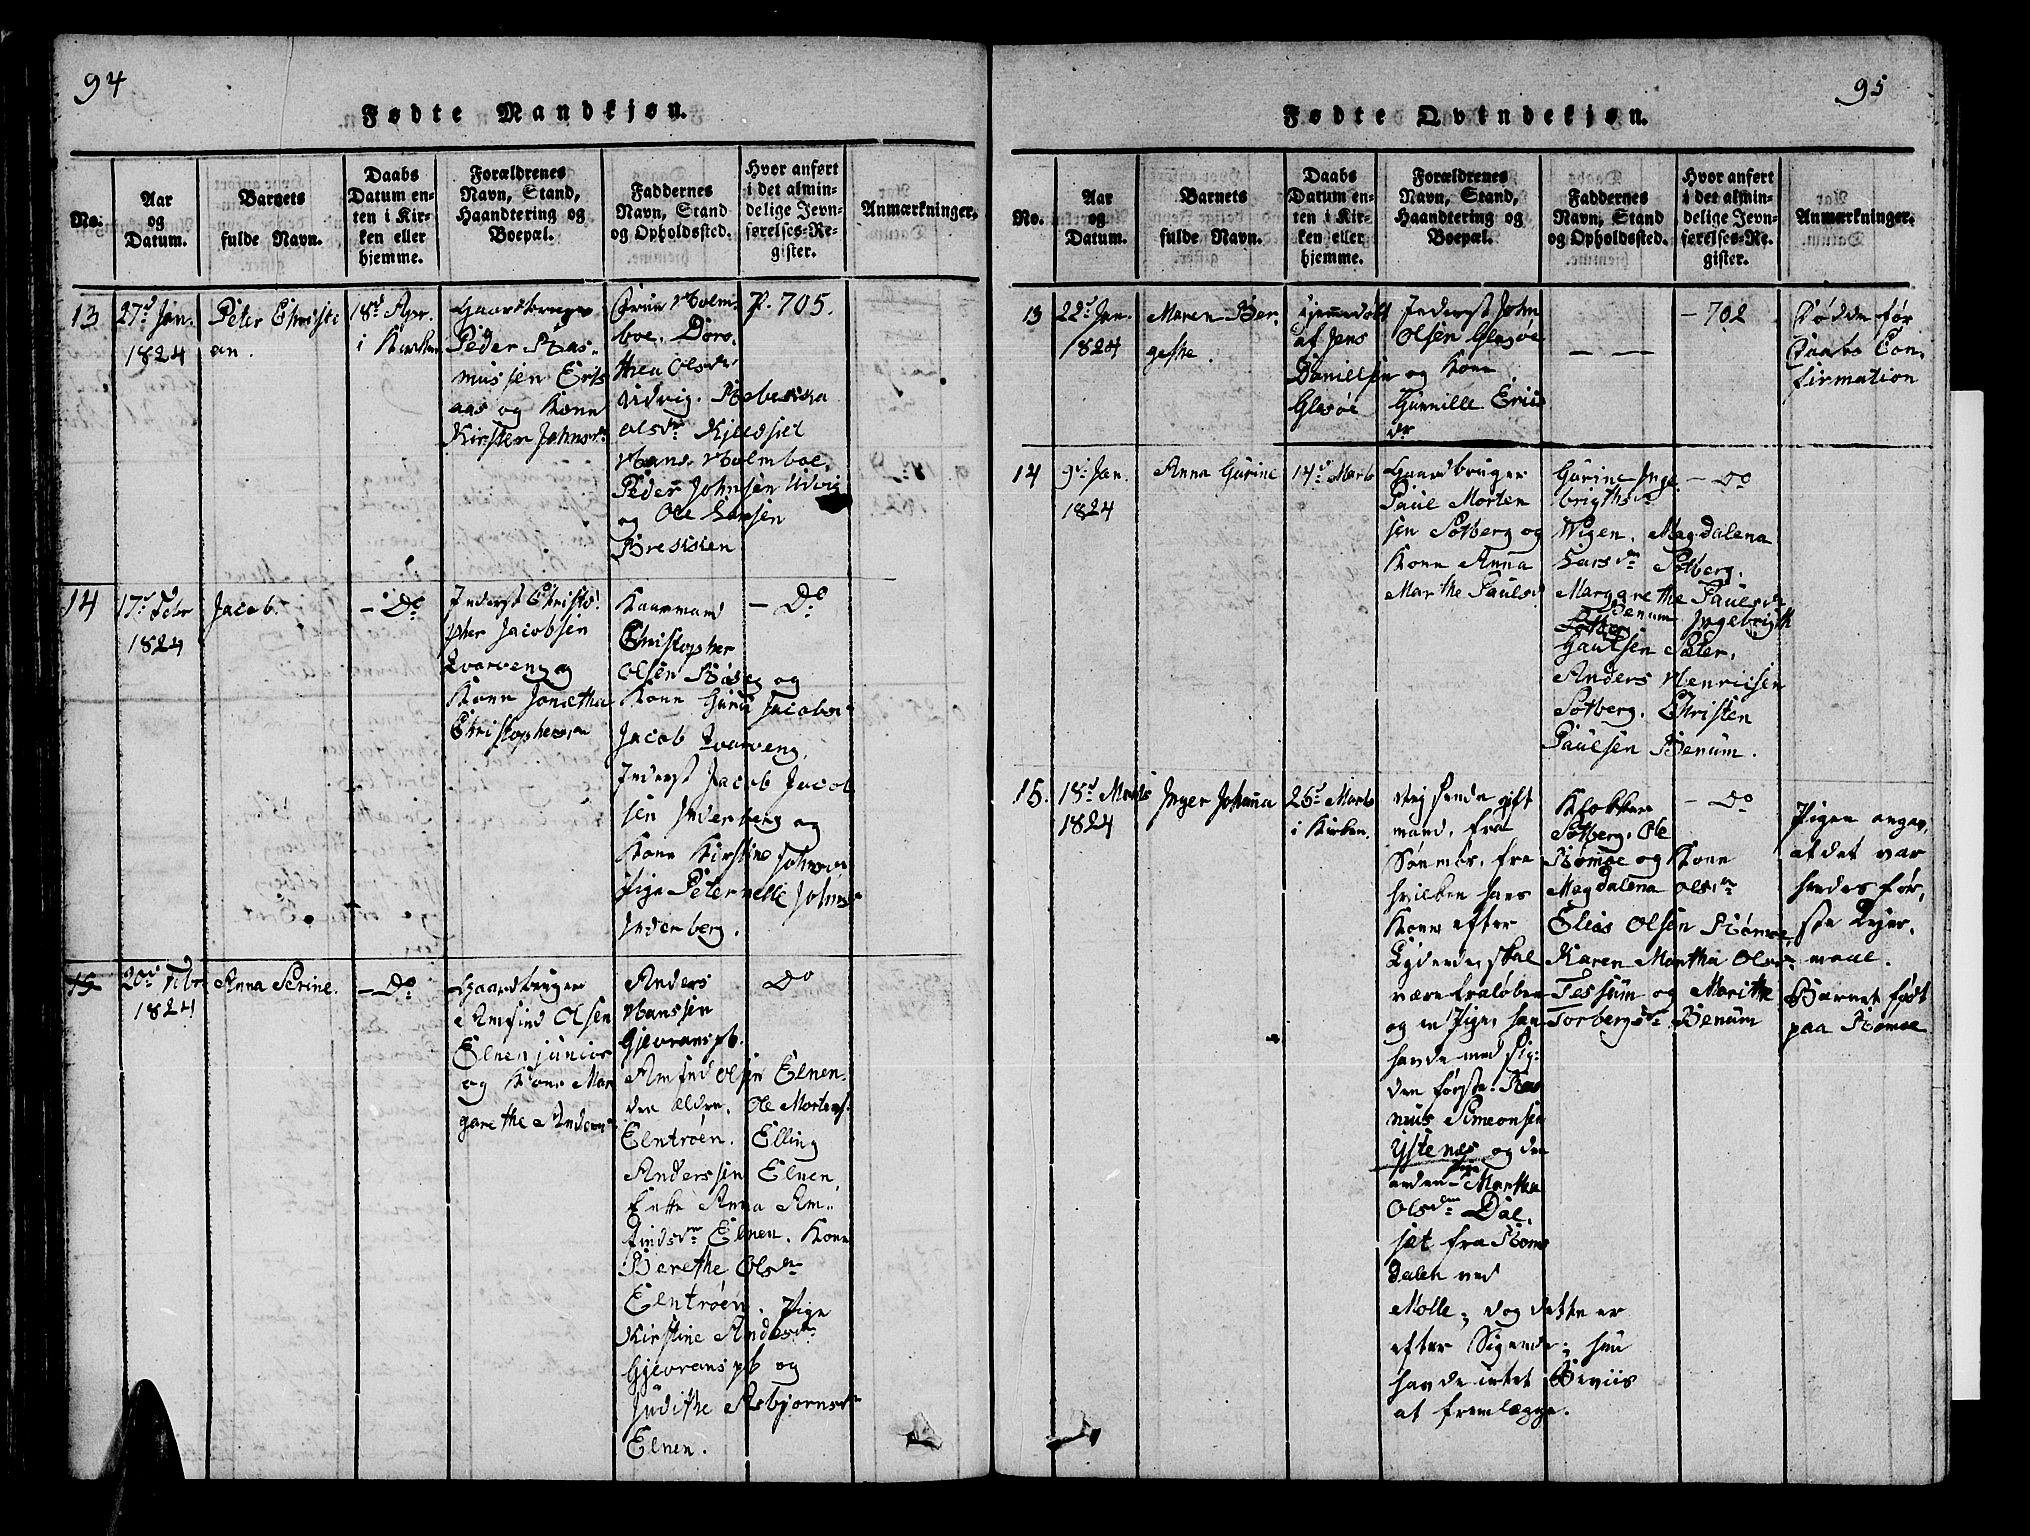 94
Fødte Mandkjøn.
No.
Aar
og
Datum.
Barnets
fulde Navn.
Daabs
Datum en-
ten i Kir-
ken eller
hjemme.
Forældrenes
Navn, Stand,
Haandtering og
Boepæl.
Faddernes
Navn, Stand
og Opholdssted.
Hvor anført
i det almin-
delige Jevn-
førelses-Re-
gister.
Anmærkninger.
13
27d Jan.
1824
Peter Christi
an.
18d Apr.
i Kirken
Gaardbruger
Peder Ras-
mussen Erts
aas og Kone
Kirsten Johnsdr
Holm-
boe. Doro-
thea Olsdr
Udvig. Rebecka
Olsdr Kjeldset
Hans Holmboe.
Peder Johnsen Udvig
og Ole Larsen
P. 705.
14
17d Febr
1824
Jacob.
- Do
Inderst Christo-
pher Jacobsen
Qvarveng og
Kone Jonetha
Christophersdr
Kaarmand
Christopher
Olsen Røseg og
Kone Guru Jacobsdr
Jacob Qvarveng
Inderst Jacob Jacob
sen Inderberg og
Kone Kirstine Johnsdr
Pige Peternelle Johns
Inderberg.
- Do
15
20d Febr
1824
Anna Serine.
- Do
Gaardbruger
Amfind Olsen
Elnen junior
og Kone Mar
garethe Anders
Anders
Hanssen
Gjevranspb.
Amfind Olsen Elnen
den ældre. Ole Mortens
Elntrøen. Elling
Anderssen Elnen
Enke Anna Am-
findsdr Elnen. Kone
Berethe Olsdr
Elntrøen. Pige
Kirstine Andersdr
Gjevranspb og
Judithe Asbjørnsdr
Elnen.
Do
95
Fødte Qvindekjøn.
No.
Aar
og
Datum.
Barnets
fulde Navn.
Daabs
Datum en-
ten i Kir-
ken eller
hjemme.
Forældrenes
Navn, Stand,
Haandtering og
Boepæl.
Faddernes
Navn, Stand
og Opholdssted.
Hvor anført
i det almin-
delige Jevn-
førelses-Re-
gister.
Anmærkninger.
13
22d Jan.
1824
Maren Ber-
gethe.
Hjemmedøbt
af Jens
Danielsen
Glesøe
Inderst John
Olsen Glesøe
og Kone
Gunnille Erics
dr
— —
- 702
Dødde før
Daabs Con-
firmation
14
9d Jan.
1824
Anna Gurine
14d Marts
Gaardbruger
Paul Morten
sen Solberg og
Kone Anna
Marthe Paulsd
Gurine Inge
brigthsdr
Wigen. Magdalena
Larsdr Solberg.
Margarethe Paulsdr
Benum Ingebrigth
Gaulsen Sæter.
Anders Henricsen
Solberg. Christen
Paulsen Benum.
- Do
15.
18d Marts
1824
Inger Johanna
25d Marts
i Kirken.
Veifarende gift
mand, fra
Søndmør, fra
hvilken hans
Kone efter
Lydende skal
være fraløben
og en Pige, han
havde med sig:
den første Ras
mus Simeonsen
Ystenes og den
anden Pige Martha
Olsdr Dal-
sæt fra Roms
dalen ved
Molle; dog dette er
efter Sigende; hun
havde intet Beviis
at fremlægge.
Klokker
Solberg. Ole
Rømoe og Kone
Magdalena Olsdr
Elias Olsen Rømoe
Karen Martha Olsdr
Tessum og Marithe
Torbergsdr Benum
- Do
Pigen angav,
at det var
hendes før-
ste Leier-
maal.
Barnet født
paa Rømoe